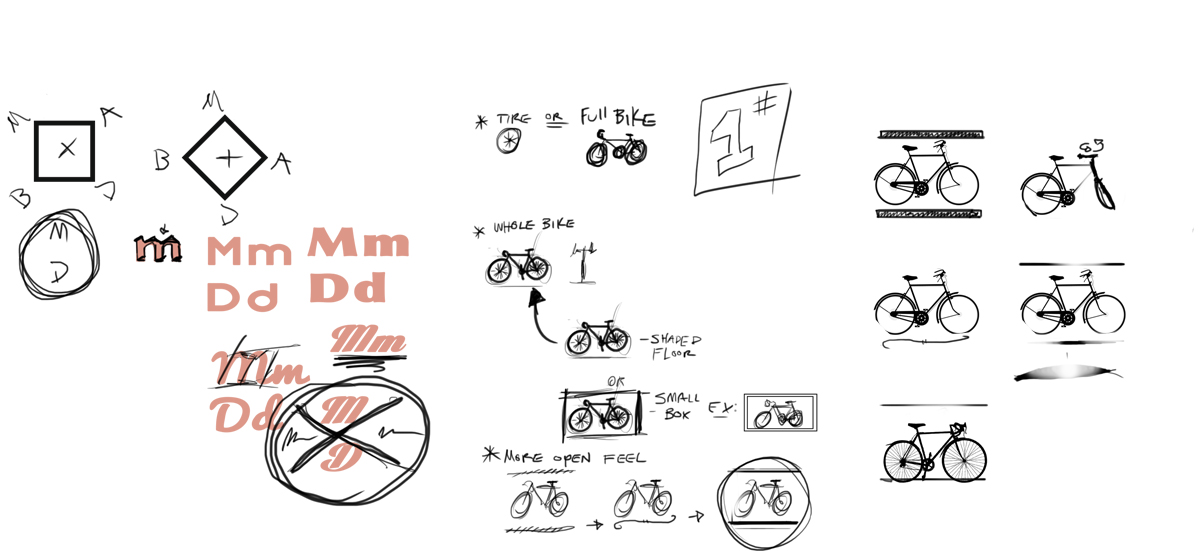 M A
X
B D
M
B + A
D
M
D
m
Mm
Dd
Mm
Dd
Mm
Mm
Dd
M
D
* TIRE OR FULL BIKE
#1
* WHOLE BIKE
- SHADED
FLOOR
OR
- SMALL
BOX EX:
* MORE OPEN FEEL